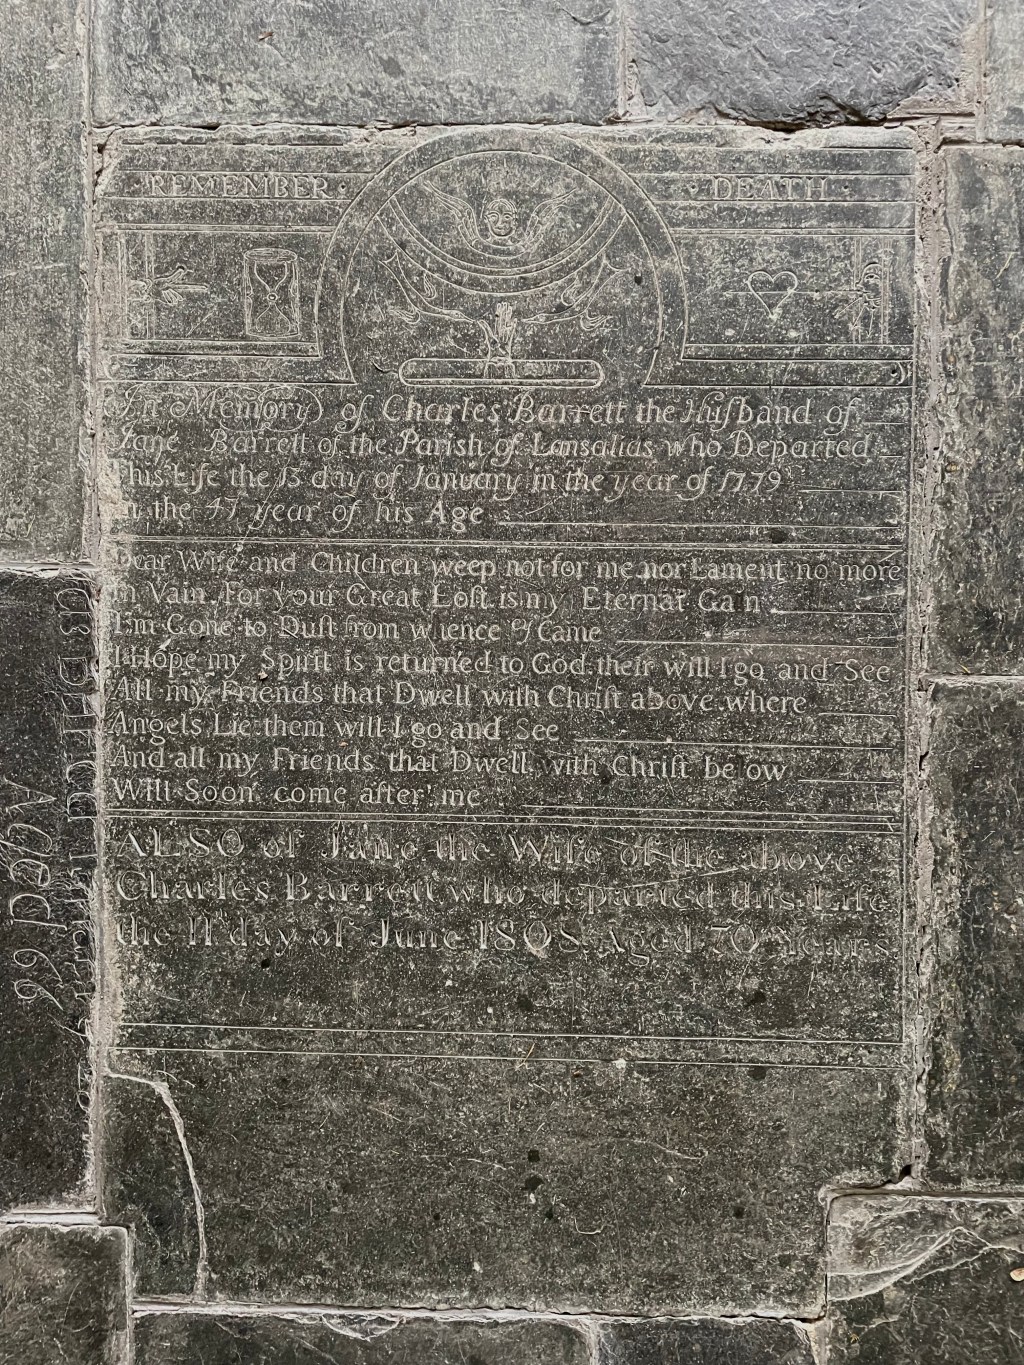 REMEMBER DEATH
In Memory of Charles Barrett the Husband of
Jane Barrett of the Parish of Lansallas who Departed
This Life the 15 day of January in the year of 1779
In the 47 year of his Age
Dear Wife and Children weep not for me nor Lament no more
in Vain For your Great Lost is my Eternal Gain
I'm Gone to Dust from whence I Came
I Hope my Spirit is returned to God their will I go and See
All my Friends that Dwell with Christ above where
Angels Lie them will I go and See
And all my Friends that Dwell with Christ below
Will Soon come after me
ALSO of Jane the Wife of the above
Charles Barrett who departed this Life
the 11 day of June 1808 Aged 70 Years
Aged 66